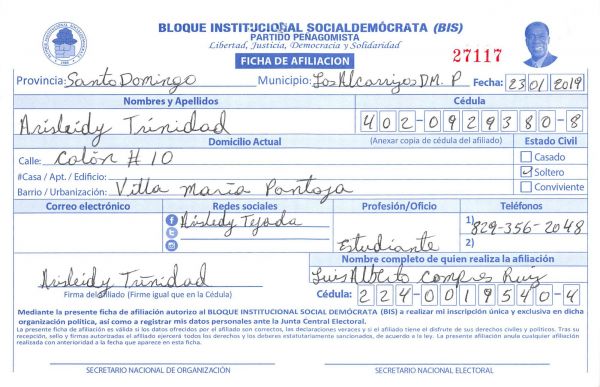 BLOQUE INSTITUCIONAL SOCIALDEMÓCRATA (BIS)
PARTIDO PEÑAGOMISTA
Libertad, Justicia, Democracia y Solidaridad
FICHA DE AFILIACION
27117
Provincia: Santo Domingo Municipio: Los Alcarrizos DM. P Fecha: 23/01/2019
Nombres y Apellidos Cédula
Arisleidy Trinidad 402-0929380-8
(Anexar copia de cédula del afiliado)
Domicilio Actual Estado Civil
Calle: Colón # 10 Casado
#Casa / Apt. / Edificio: Soltero
Barrio / Urbanización: Villa María Pantoja Conviviente
Correo electrónico Redes sociales Profesión/Oficio Teléfonos
Arisledy Tejada Estudiante 1) 829-356-2048
2)
Nombre completo de quien realiza la afiliación
Arisleidy Trinidad Luis Alberto Compres Ruiz
Firma del afiliado (Firme igual que en la Cédula) Cédula: 224-0019540-4
Mediante la presente ficha de afiliación autorizo al BLOQUE INSTITUCIONAL SOCIAL DEMÓCRATA (BIS) a realizar mi inscripción única y exclusiva en dicha
organización política, así como a registrar mis datos personales ante la Junta Central Electoral.
La presente ficha de afiliación es válida si los datos ofrecidos por el afiliado son correctos, las declaraciones veraces y si el afiliado tiene el disfrute de sus derechos civiles y políticos. Tras su
recepción, sello y firmas autorizadas el afiliado ejercerá todos los derechos y los deberes estatutariamente sancionados, de acuerdo a la ley. La presente afiliación anula cualquier afiliación
realizada con anterioridad a la fecha que aparece en esta ficha.
SECRETARIO NACIONAL DE ORGANIZACIÓN SECRETARIO NACIONAL ELECTORAL